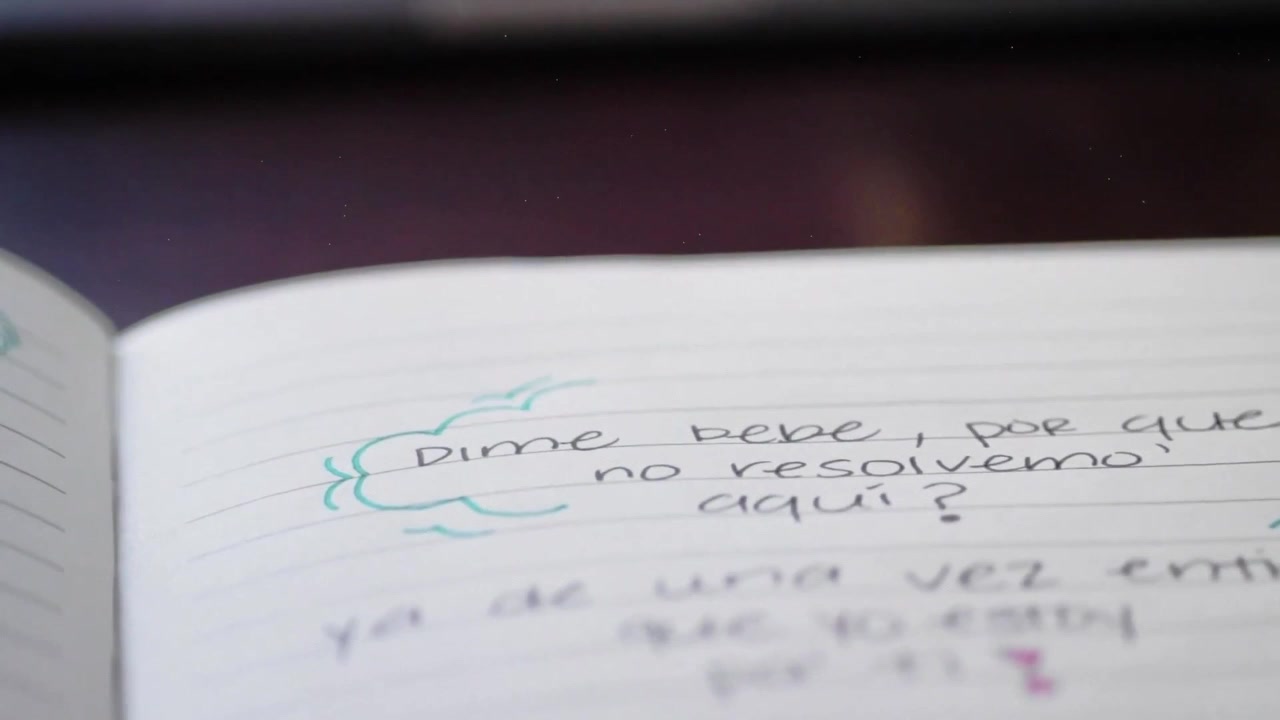 Dime bebe, por que
no resolvemo'
aquí?
ya de una vez enti
que yo estoy
por ti